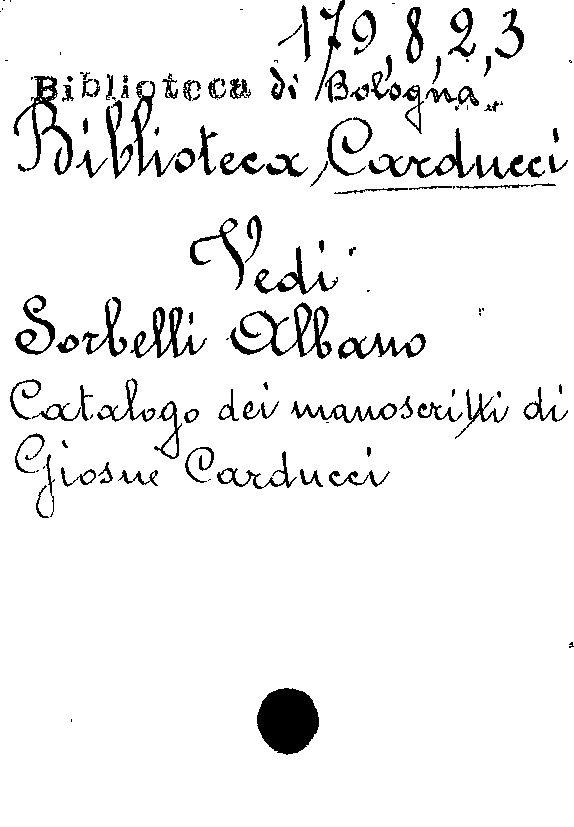 179,8,2,3
Biblioteca di Bologna
Biblioteca Carducci
Vedi
Sorbelli Albano
Catalogo dei manoscritti di
Giosuè Carducci